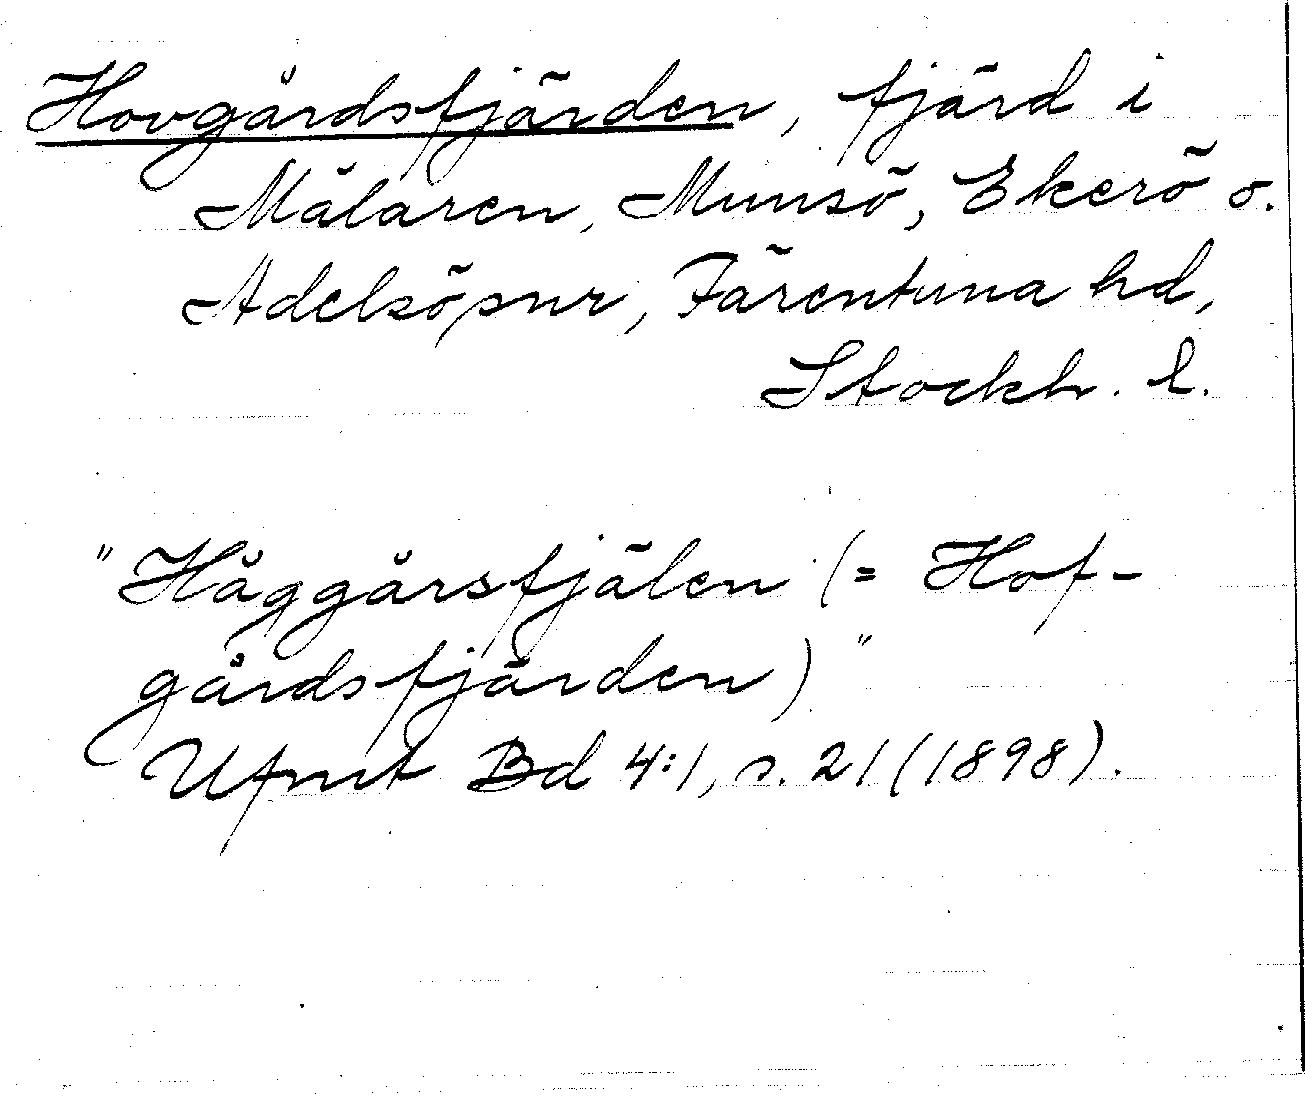 Hovgårdsfjärden, fjärd i
Mälaren, Munsö, Ekerö o.
Adelsö snr, Färentuna hd,
Stockh. l.
"Håggårsfjälen (= Hof-
gårdsfjärden)"
Ufmt Bd 4:1, s. 21 (1898).